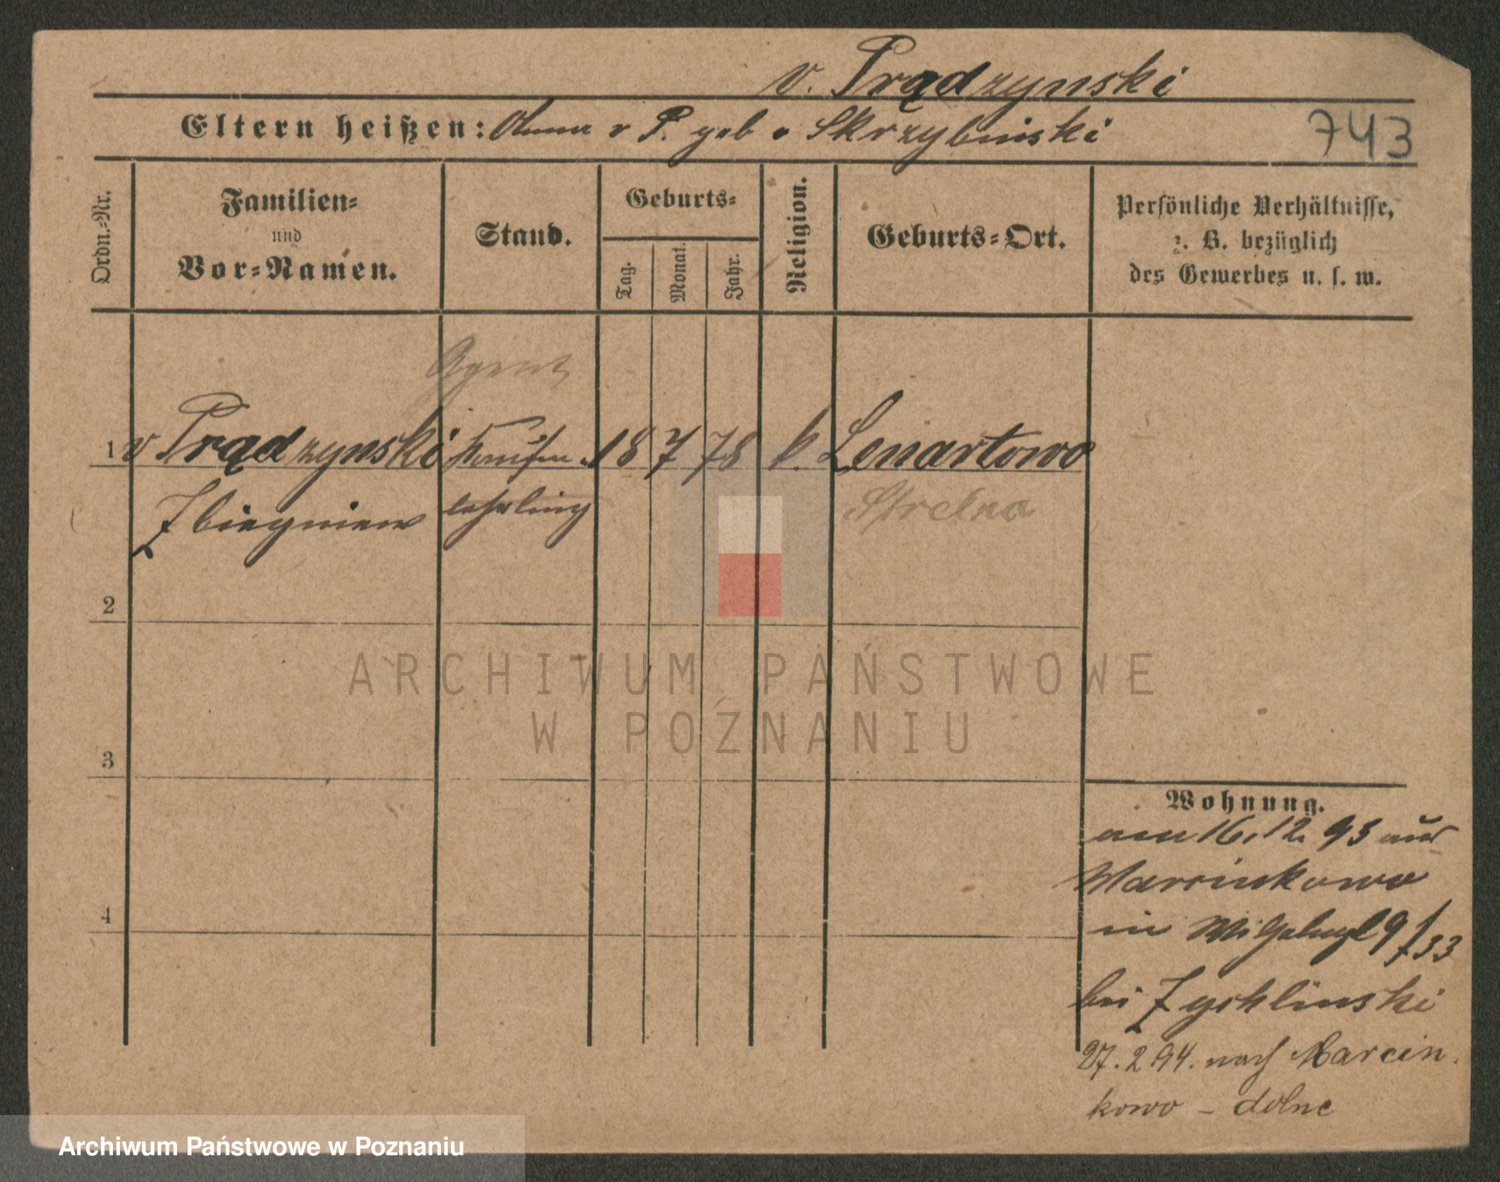 v. Prądzynski
Eltern heißen: Anna v P. geb v Skrzybinski
743
Ordn.-Nr.
Familien-
und
Vor-Namen.
Stand.
Geburts-
Tag.
Monat.
Jahr.
Religion.
Geburts-Ort.
Persönliche Verhältnisse,
z. B. bezüglich
des Gewerbes u. s. w.
Agent
1 v Prądzynski Kaufm. 18 7 78 k. Lenartowo
Zbiegniew lehrling Strelno
2
3
4
Wohnung.
am 16.12.93 aus
Marcinkowo
in 9/33
bei Zychlinski
27.2.94. nach Marcin
kowo - dolne
ARCHIWUM PAŃSTWOWE
W POZNANIU
Archiwum Państwowe w Poznaniu